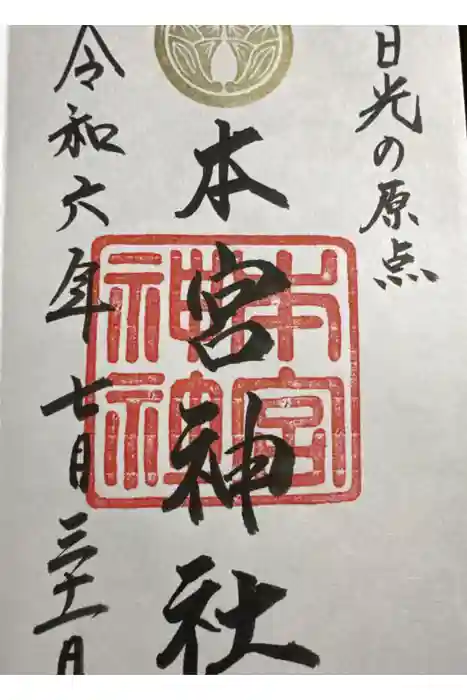 日光の原点
本宮神社
本宮神社
令和六年七月三十一日